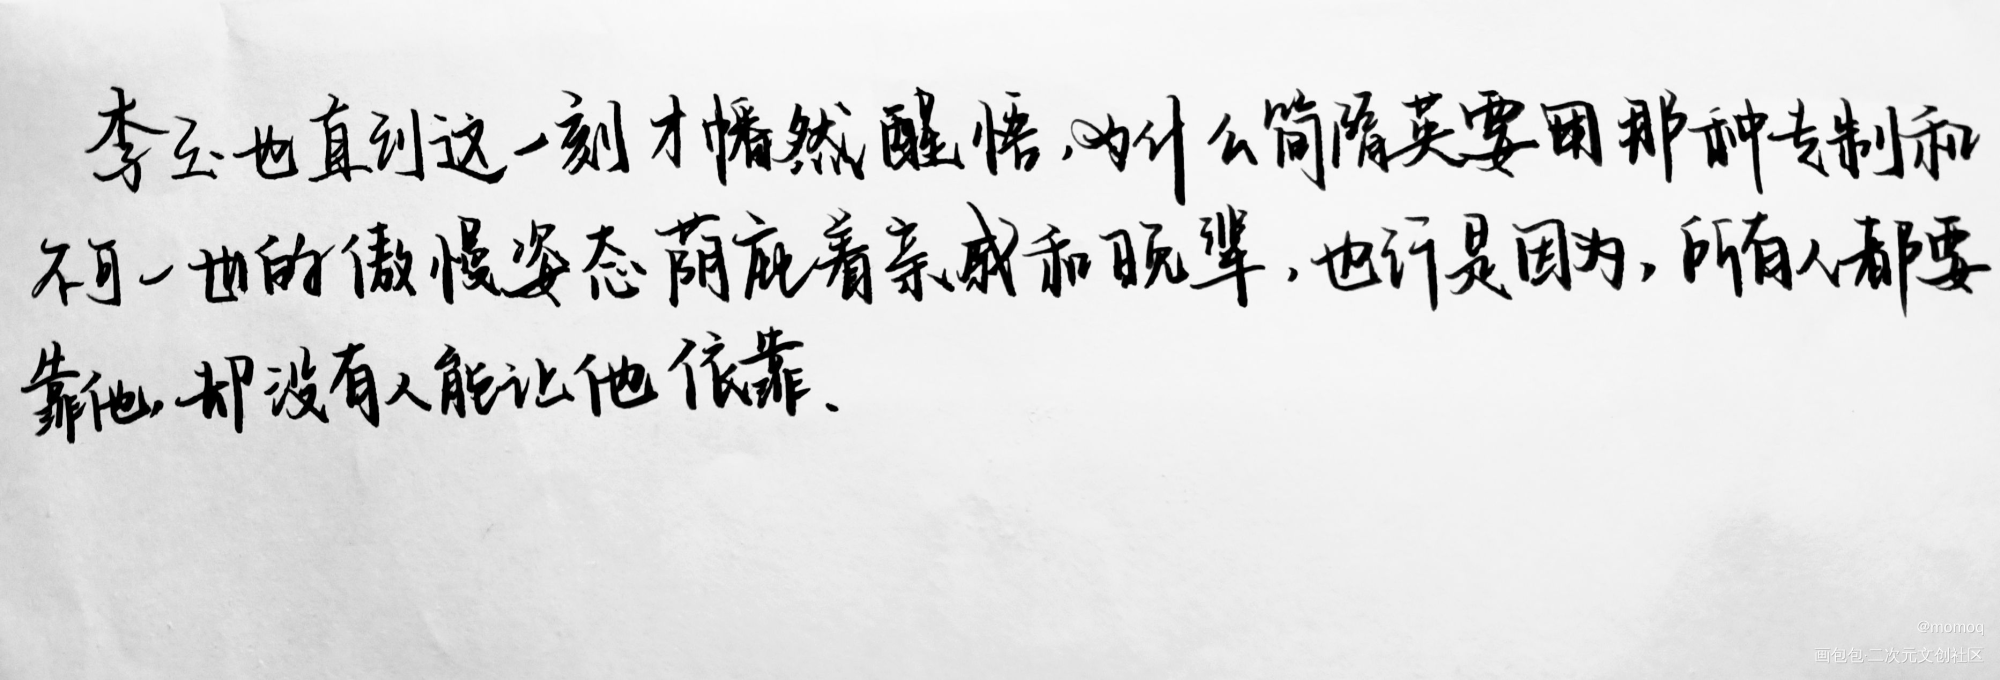 李玉也直到这一刻才幡然醒悟,为什么简隋英要用那种专制和
不可一世的傲慢姿态荫庇着亲戚和晚辈,也许是因为,所有人都要
靠他,却没有人能让他依靠.
@momoq
画包包·二次元文创社区